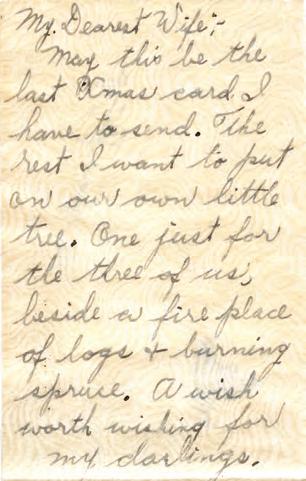 My Dearest Wife;-
May this be the
last Xmas card I
have to send. The
rest I want to put
on our own little
tree. One just for
the three of us,
beside a fire place
of logs + burning
spruce. A wish
worth wishing for
my darlings.